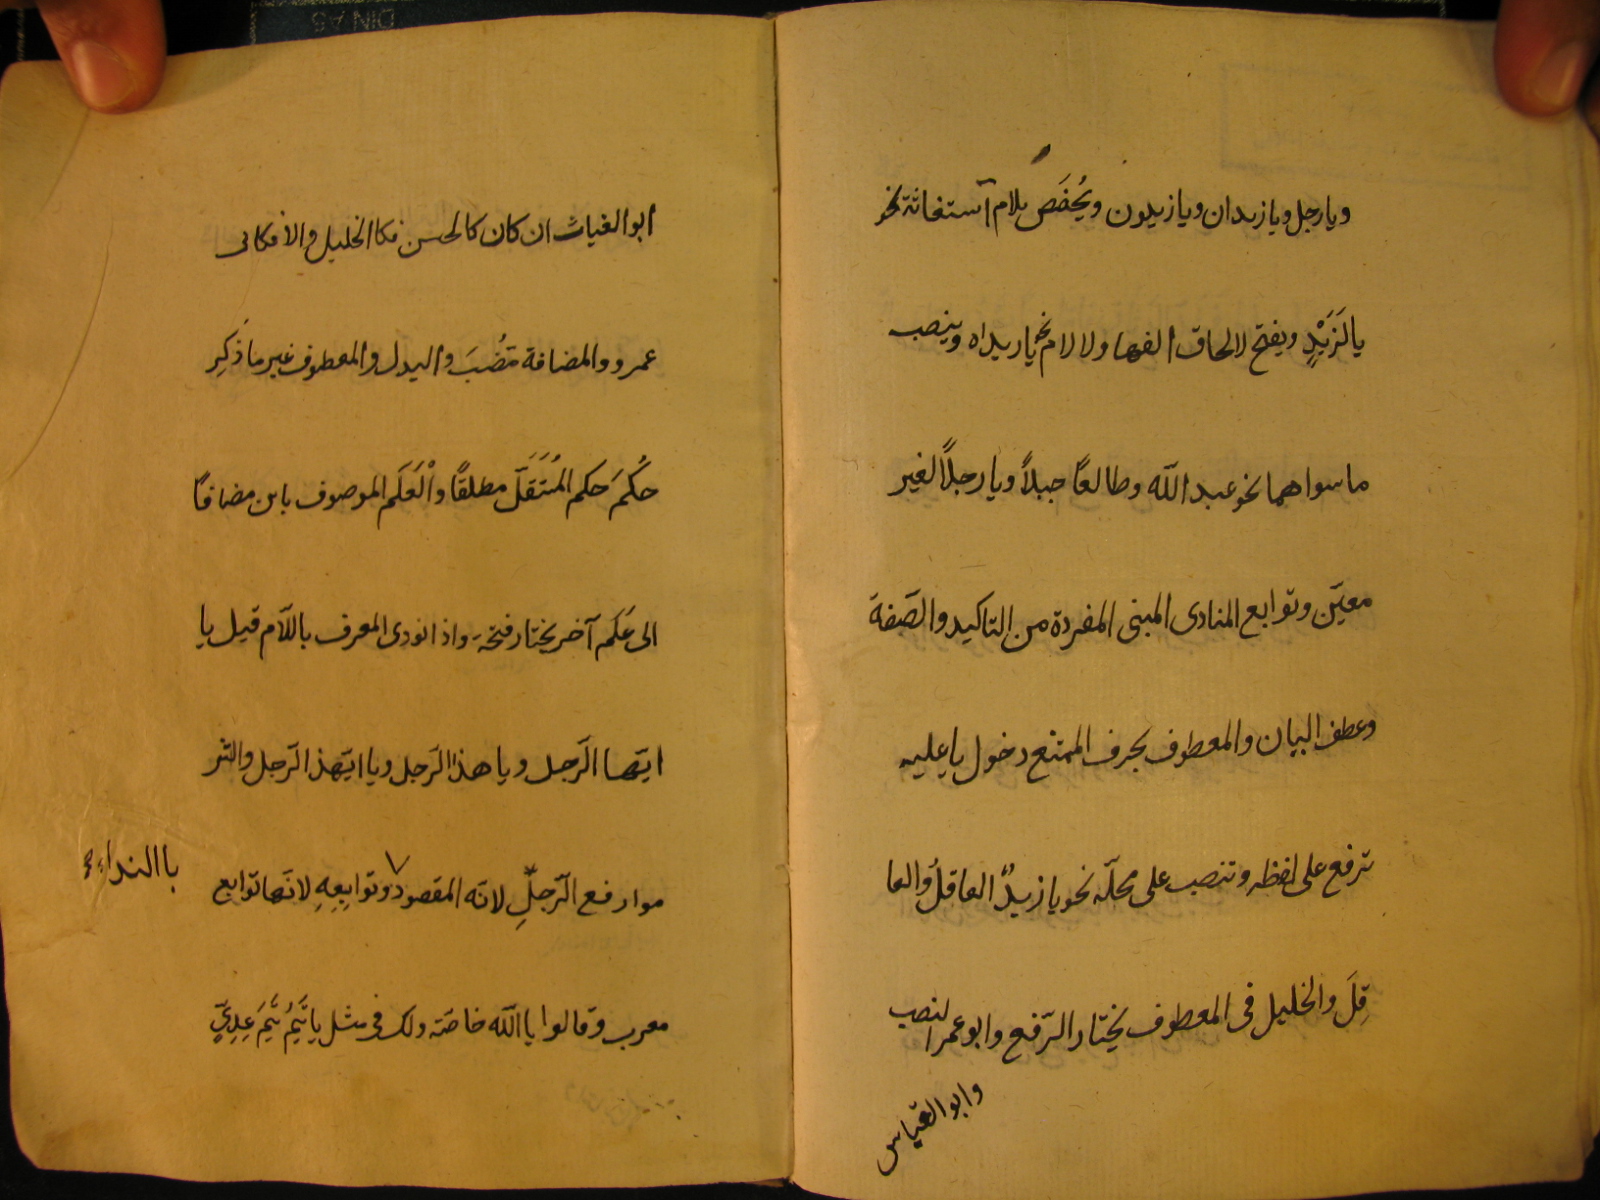 ويارجل ويازيدان ويازيدون ويُخفَص بلام آستغاثة نحو
يالَزَيْدٍ ويفتح لالحاق الفها ولا لام نحو يازيداه وينصب
ماسواهما نحو عبد اللّه وطالعًا جبلاً ويارجلاً لغير
معيّن وتوابع المنادى المبنى المفردة من التاكيد والصّفة
وعطف البيان والمعطوف بحرف الممتنع دخول يا عليه
ترفع على لفظه وتنصب على محلّه نحو يازيدُ العاقلُ والعا
قِلَ والخليل فى المعطوف يختار الرّفع وابوعمر النصب
وابوالعبّاس
ابوالغياث ان كان كالحسن فكاالخليل والافكانى
عمرو والمضافة تنصُبَ والبدل والمعطوف غير ما ذكِر
حُكمَ حكم المُتَقَلّ مطلقًا واْلعَلَم الموصوف بابن مضافًا
الى عَلَم آخر يختار فتحه واذا نودى المعرف باللّام قيل يا
ايّها الرّجل ويا هذا الرّجل ويا ايّهذ الرّجل والتر
موا رفع الرّجلِ لانّه المقصود وتوابِعِهِ لانّها توابع
باالنداء
معرب وقالوا ياالله خاصّة ولك فى مثل ياتَيمُ تَيمَ عِدِيٍّ